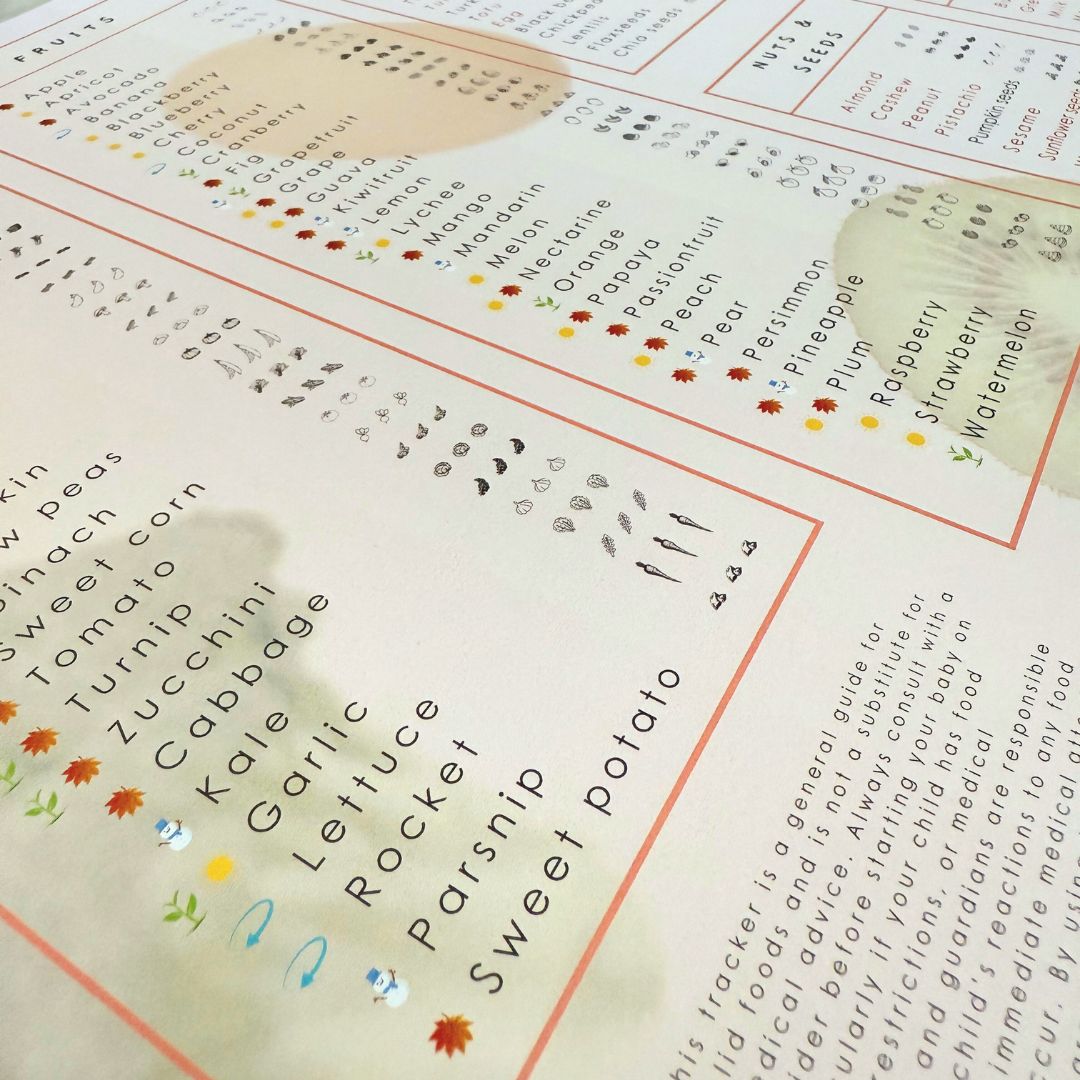 FRUITS
Apple
Apricot
Avocado
Banana
Blackberry
Blueberry
Cherry
Coconut
Cranberry
Fig
Grapefruit
Grape
Guava
Kiwifruit
Lemon
Lychee
Mango
Mandarin
Melon
Nectarine
Orange
Papaya
Passionfruit
Peach
Pear
Persimmon
Pineapple
Plum
Raspberry
Strawberry
Watermelon
Tofu
Egg
Chickpeas
Lentils
Flaxseeds
Chia seeds
NUTS &
SEEDS
Almond
Cashew
Peanut
Pistachio
Pumpkin seeds
Sesame
Sunflower seeds
kin
w peas
inach
Sweet corn
Tomato
Turnip
Zucchini
Cabbage
Kale
Garlic
Lettuce
Rocket
Parsnip
Sweet potato
his tracker is a general guide for
lid foods and is not a substitute for
dical advice. Always consult with a
ider before starting your baby on
ularly if your child has food
estrictions, or medical
and guardians are responsible
child's reactions to any food
immediate medical atte
ccur. By using